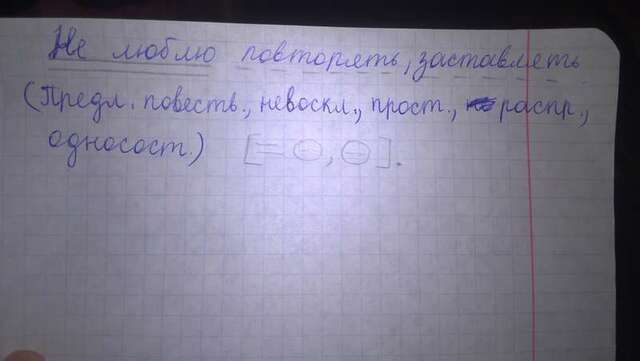 Не люблю повторять, заставлять
(Предл. повеств., невоскл., прост., распр.,
односост.) [= ⊖, ⊖].